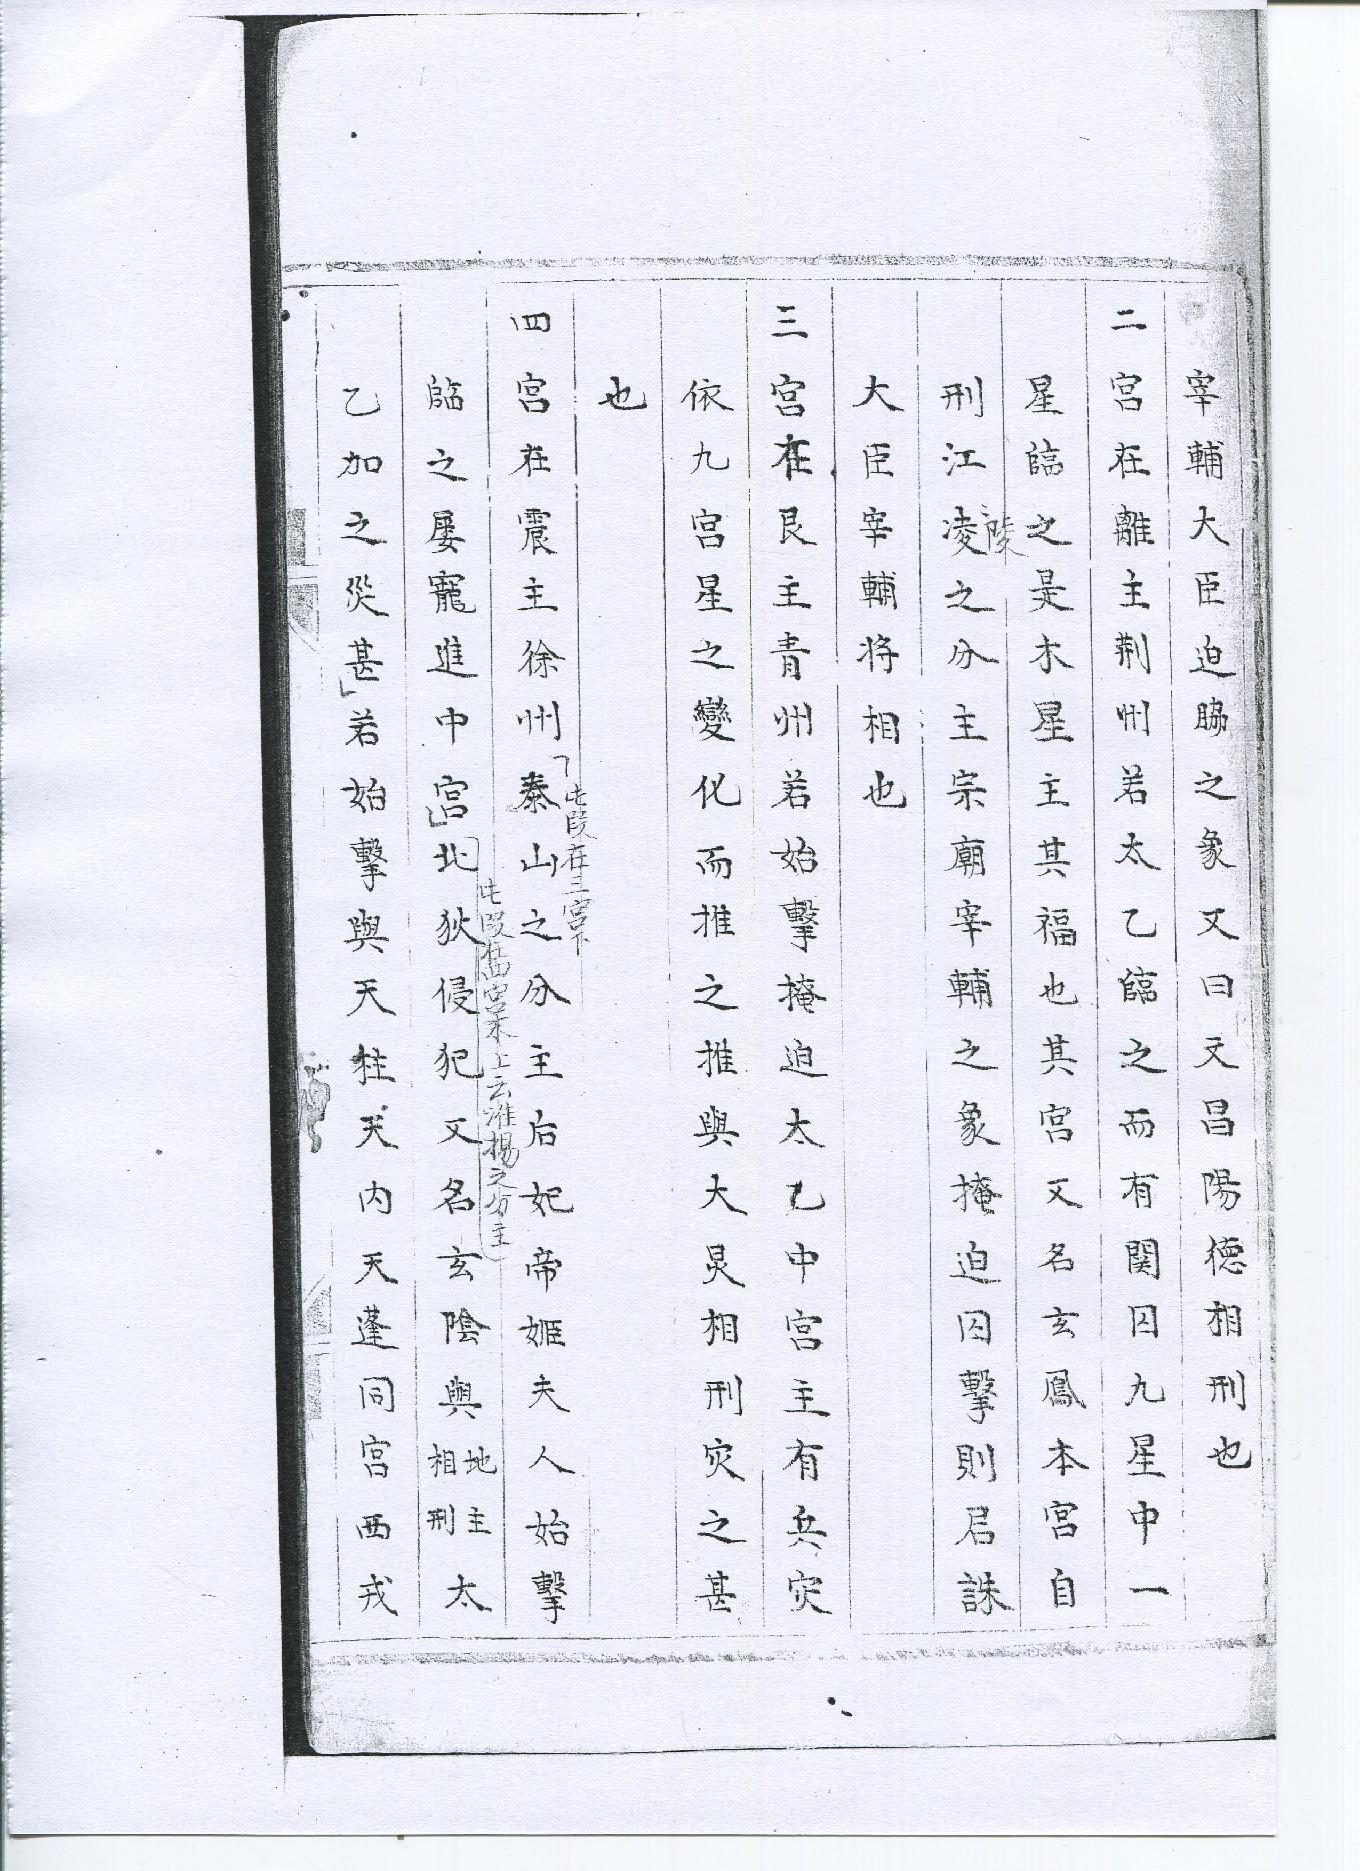 宰輔大臣迫脇之象又曰文昌陽德相刑也
二宮在離主荆州若太乙臨之而有関囚九星中一
星臨之是木星主其福也其宮又名玄鳳本宮自
陵
刑江凌之分主宗廟宰輔之象掩迫囚擊則君誅
大臣宰輔将相也
三宮在艮主青州若始擊掩迫太乙中宮主有兵灾
依九宮星之變化而推之推與大炅相刑灾之甚
也
此段在三宮下
四宮在震主徐州秦山之分主后妃帝姬夫人始擊
宮末上云淮揚之分主
臨之屡寵進中宮北狄侵犯又名玄陰與地主相刑太
乙加之災甚若始擊與天柱天内天蓬同宮西戎